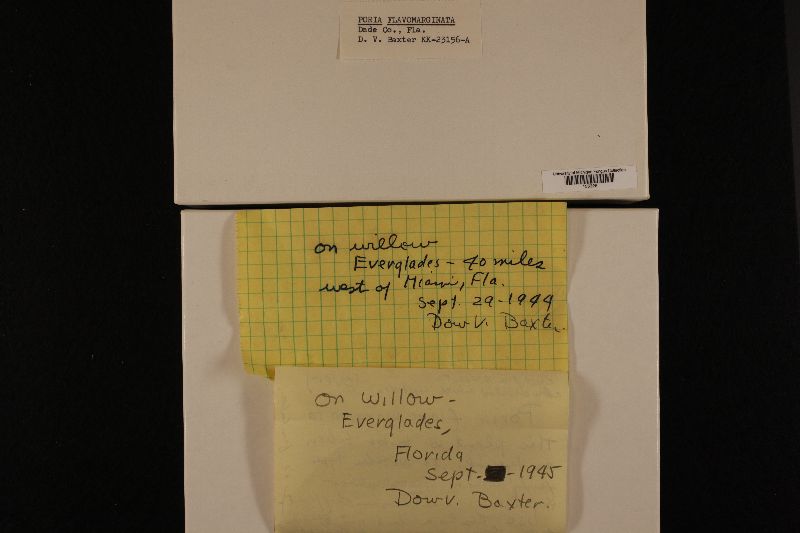 PORIA FLAVOMARGINATA
Dade Co., Fla.
D. V. Baxter KK-23156-A
University of Michigan Fungus Collection
on willow
Everglades - 40 miles
west of Miami, Fla.
Sept. 29-1944
Dow V. Baxter
on willow -
Everglades,
Florida
Sept. - 1945
Dow V. Baxter.